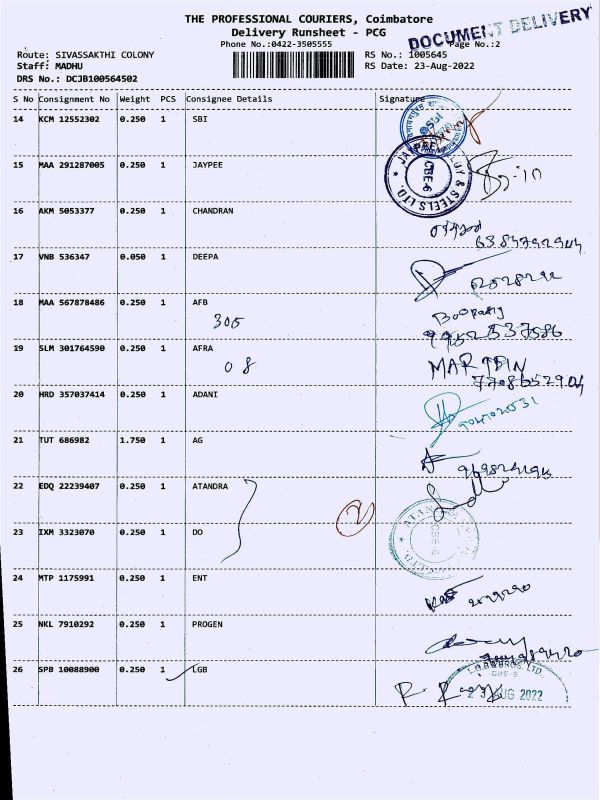 THE PROFESSIONAL COURIERS, Coimbatore
Delivery Runsheet - PCG
DOCUMENT DELIVERY
Phone No.:0422-3505555
Page No.:2
Route: SIVASSAKTHI COLONY
RS No.: 1005645
Staff: MADHU
RS Date: 23-Aug-2022
DRS No.: DCJB100564502
S No Consignment No Weight PCS Consignee Details Signature
14 KCM 12552302 0.250 1 SBI
15 MAA 291287005 0.250 1 JAYPEE
& STEELS LTD.
CBE-6
16 AKM 5053377 0.250 1 CHANDRAN
17 VNB 536347 0.050 1 DEEPA
18 MAA 567878486 0.250 1 AFB
305
9952537586
19 SLM 301764590 0.250 1 AFRA
08
MARTIN
7708652904
20 HRD 357037414 0.250 1 ADANI
21 TUT 686982 1.750 1 AG
22 EDQ 22239407 0.250 1 ATANDRA
2
23 IXM 3323070 0.250 1 DO
24 MTP 1175991 0.250 1 ENT
25 NKL 7910292 0.250 1 PROGEN
26 SPB 10088900 0.250 1 LGB
L.G.B & BROS. LTD.
CBE-6
23 AUG 2022